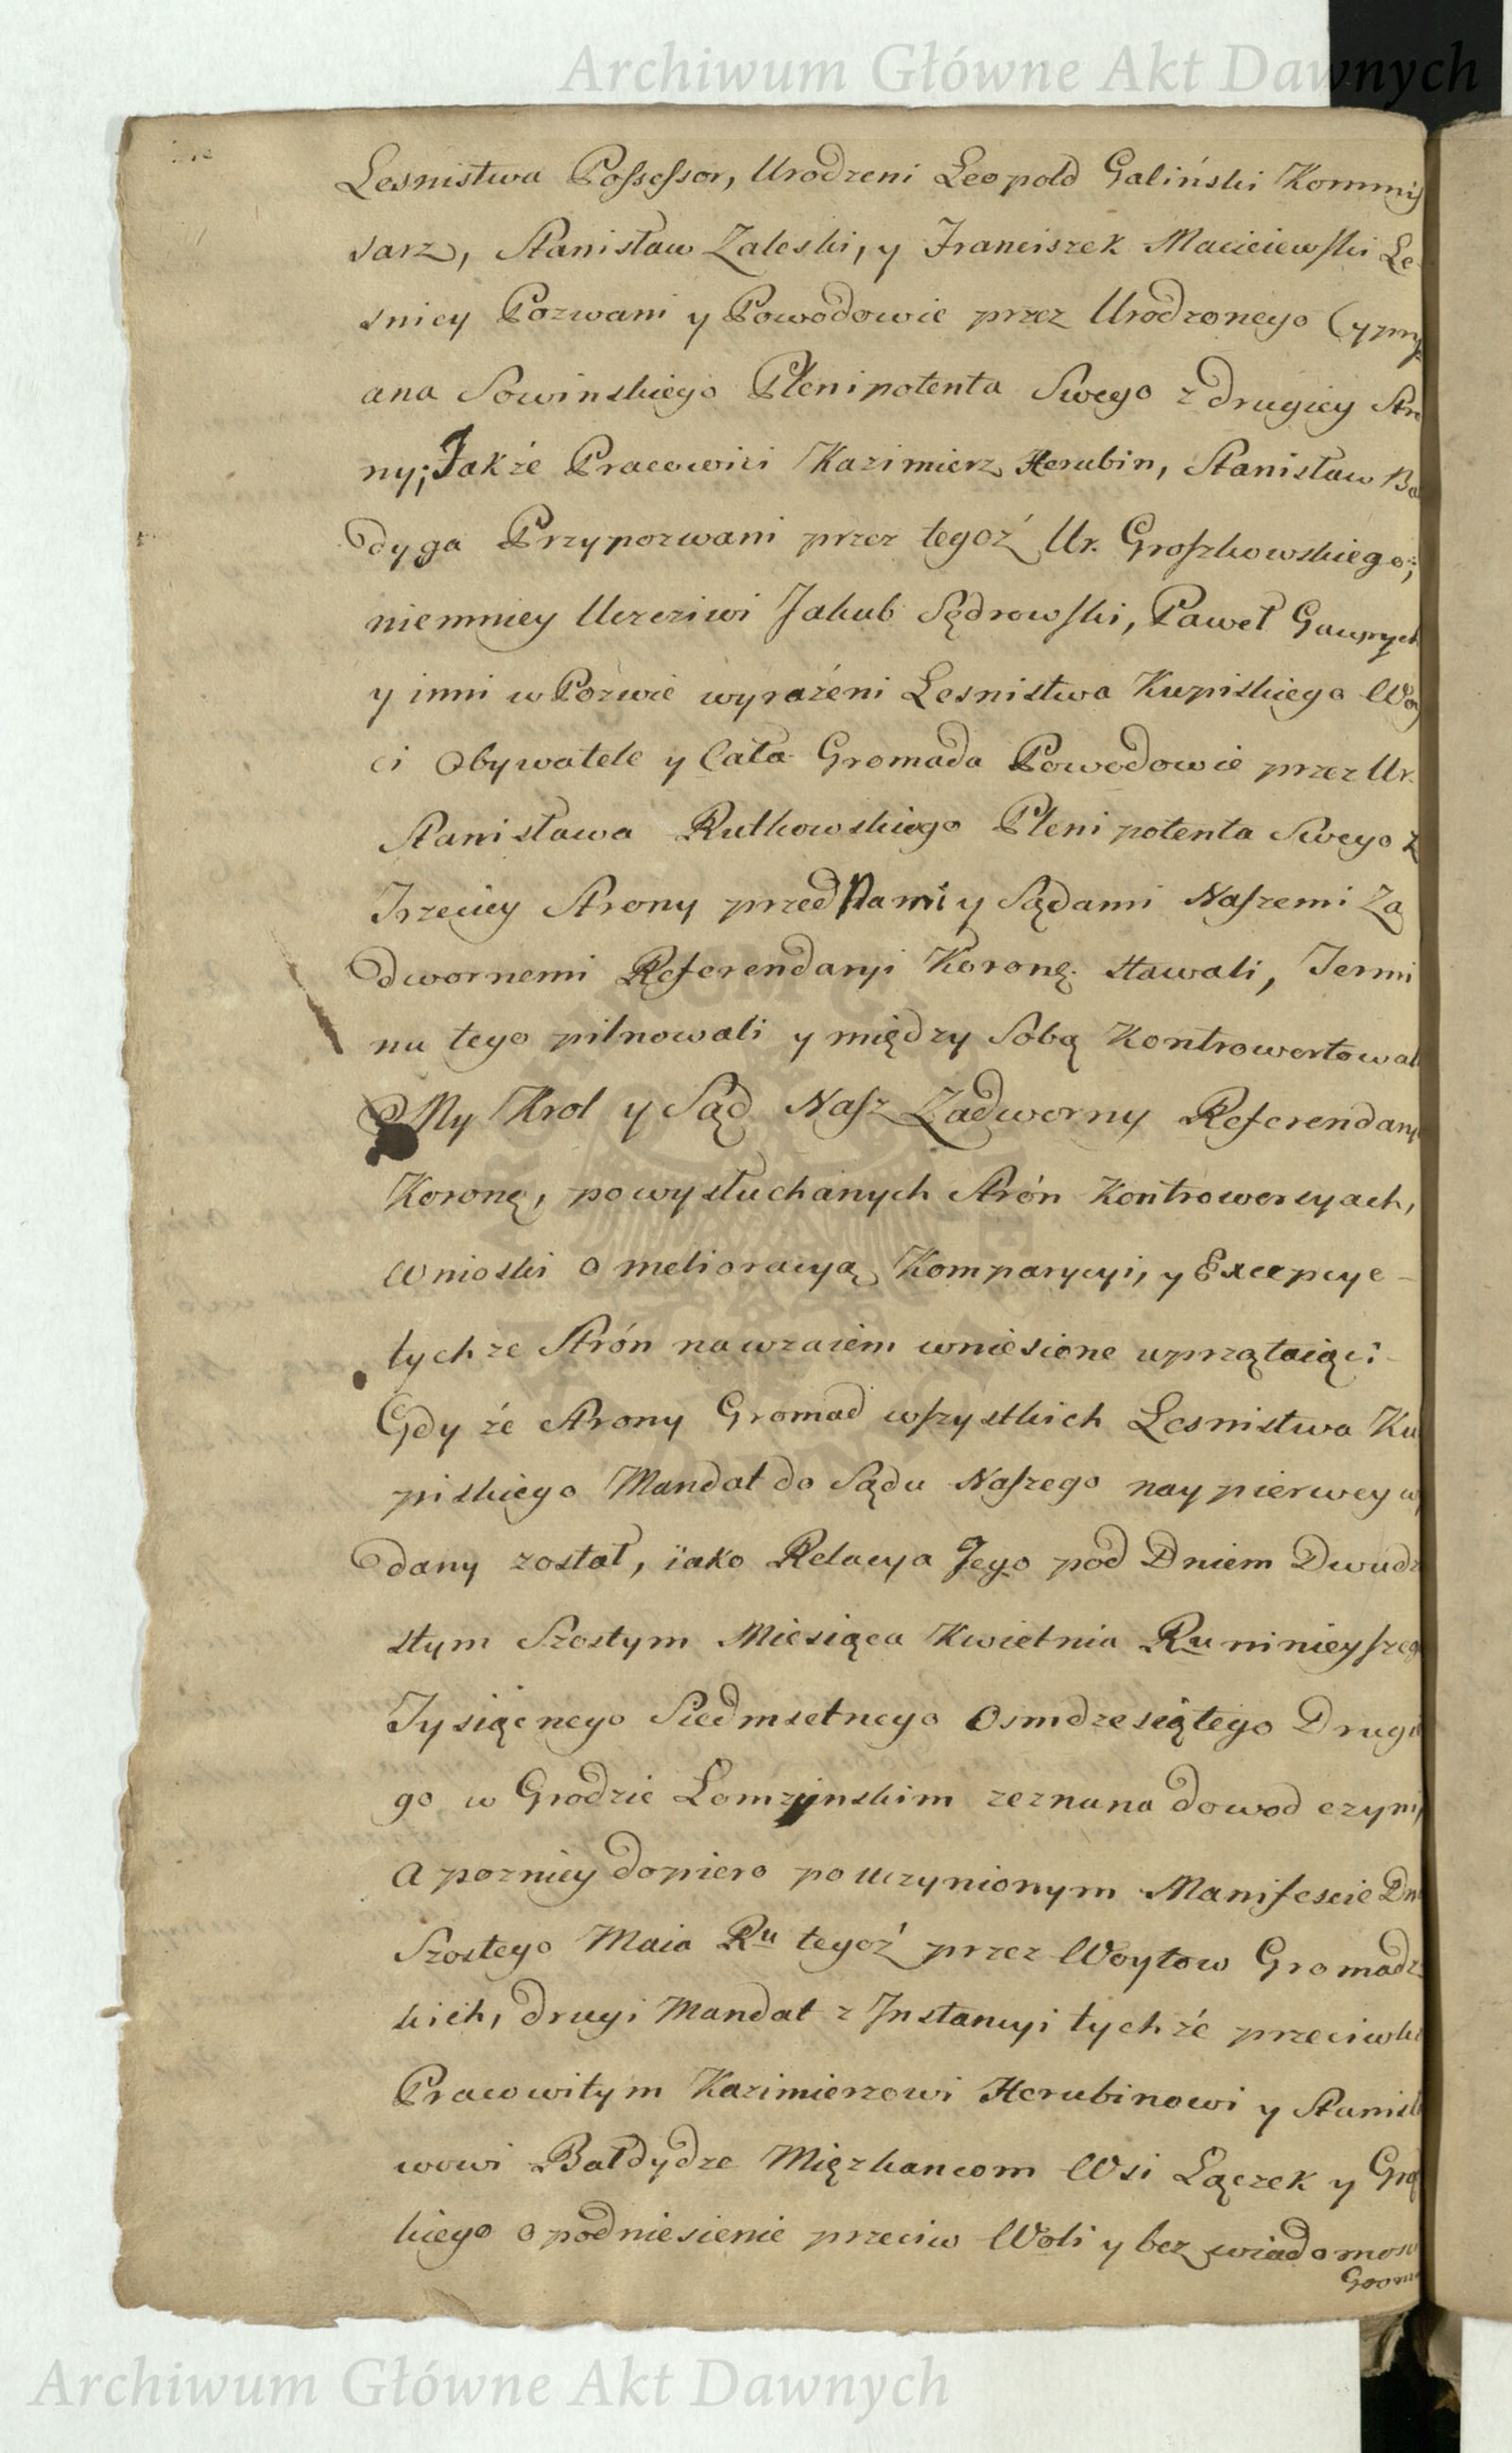 Archiwum Główne Akt Dawnych
Lesnistwa Possessor, Urodzeni Leopold Galiński Kommis
sarz, Stanisław Zaleski, y Franciszek Macieiewski Le
sniey Pozwani y Powodowie przez Urodzonego Cypry
ana Sowinskiego Plenipotenta Swego z drugiey Stro
ny; Jakże Pracowici Kazimierz Herubin, Stanisław Ba
dyga Przypozwani przez tegoż Ur. Groszkowskiego;
niemniey Uczciwi Jakub Sędrowski, Paweł Gawrych
y inni w Pozwie wyrażeni Lesnistwa Kupiskiego Woy
ci Obywatele y Cała Gromada Powodowie przez Ur.
Stanisława Rutkowskiego Plenipotenta Swego z
Trzeciey Strony przed Nami y Sądami Naszemi Za
dwornemi Referendaryi Koronę. stawali, Termi
nu tego pilnowali y między Sobą Kontrowertowal
My Krol y Sąd Nasz Zadworny Referendary
Koronę, po wysłuchanych Strón Kontrowersyach,
Wnioski o melioracyą Komparycyi, y Excepcye
tychże Strón nawzaiem wniesione uprzątaiąc:
Gdy że Strony Gromad wszystkich Lesnistwa Ku
piskiego Mandat do Sądu Naszego naypierwey wy
dany został, iako Relacya Jego pod Dniem Dwudz
stym Szostym Miesiąca Kwietnia Ru ninieyszeg
Tysiącnego Siedmsetnego Osmdzesiątego Drugi
go w Grodzie Lomzynskim zeznana dowod czyni,
a pozniey dopiero po uczynionym Manifescie Dn
Szostego Maia Ru tegoż przez Woytow Gromadz
kich, drugi Mandat z Instancyi tychże przeciwk
Pracowitym Kazimierzowi Herubinowi y Stanisł
wowi Bałdydze Mięzkancom Wsi Łączek y Grą
kiego o podniesienie przeciw Woli y bez wiadomos
Grom
Archiwum Główne Akt Dawnych